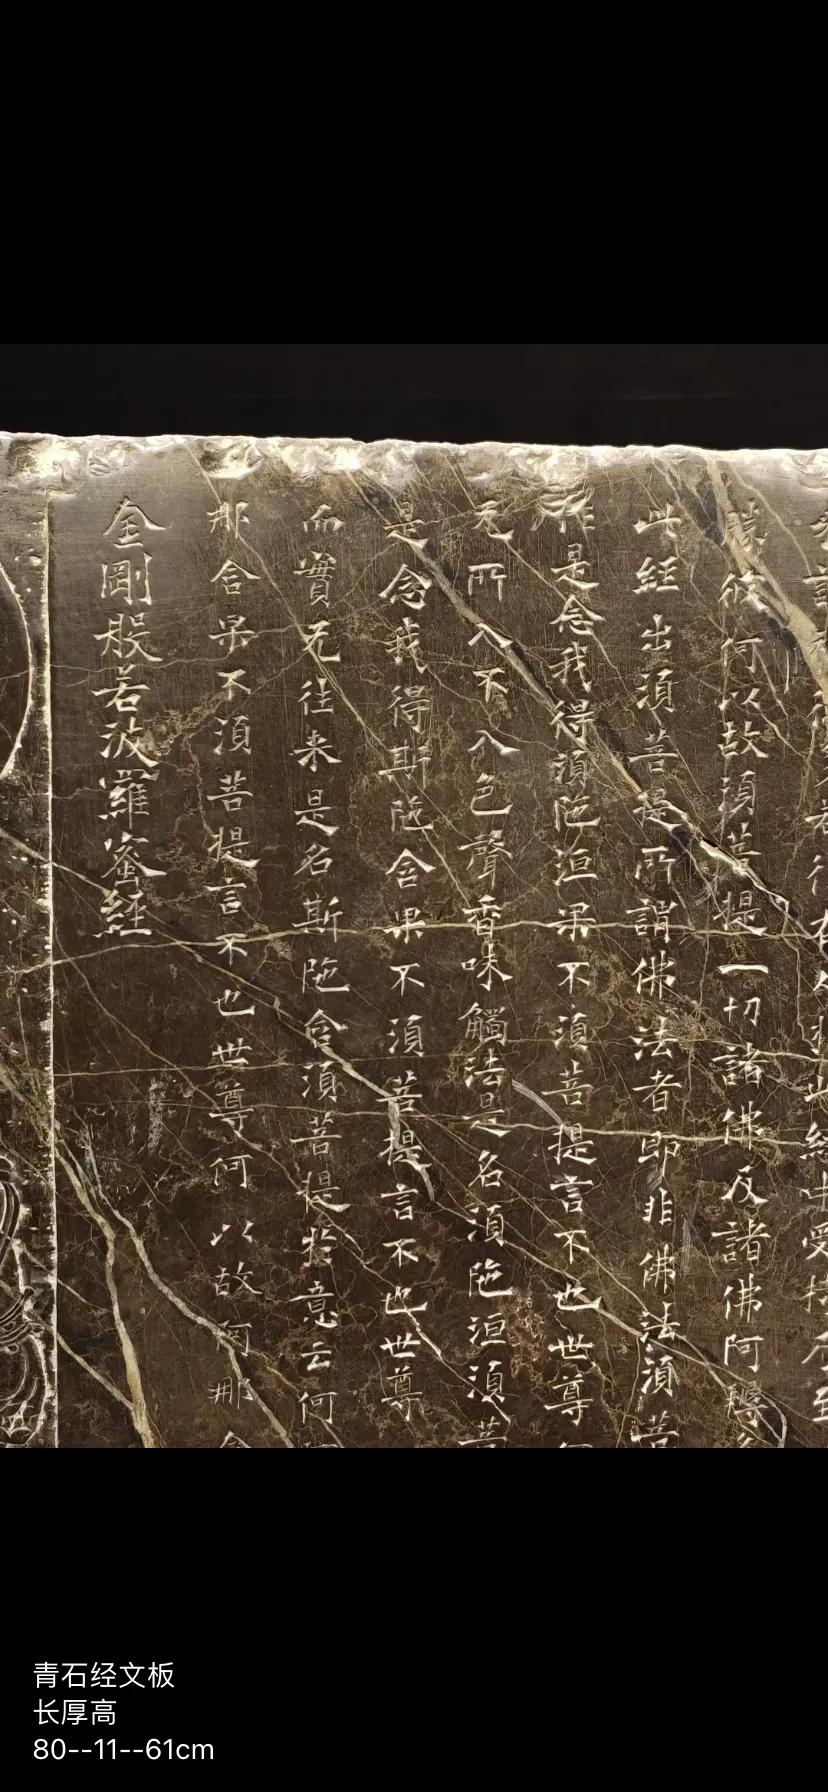 此經中受持乃至
勝彼何以故須菩提一切諸佛及諸佛阿耨
此經出須菩提所謂佛法者即非佛法須菩
作是念我得須陁洹果不須菩提言不也世尊
无所入不入色聲香味觸法是名須陁洹須菩
是念我得斯陁含果不須菩提言不也世尊
而實无往来是名斯陁含須菩提於意云何
那含果不須菩提言不也世尊何以故阿那含
金剛般若波羅蜜經
青石经文板
长厚高
80--11--61cm